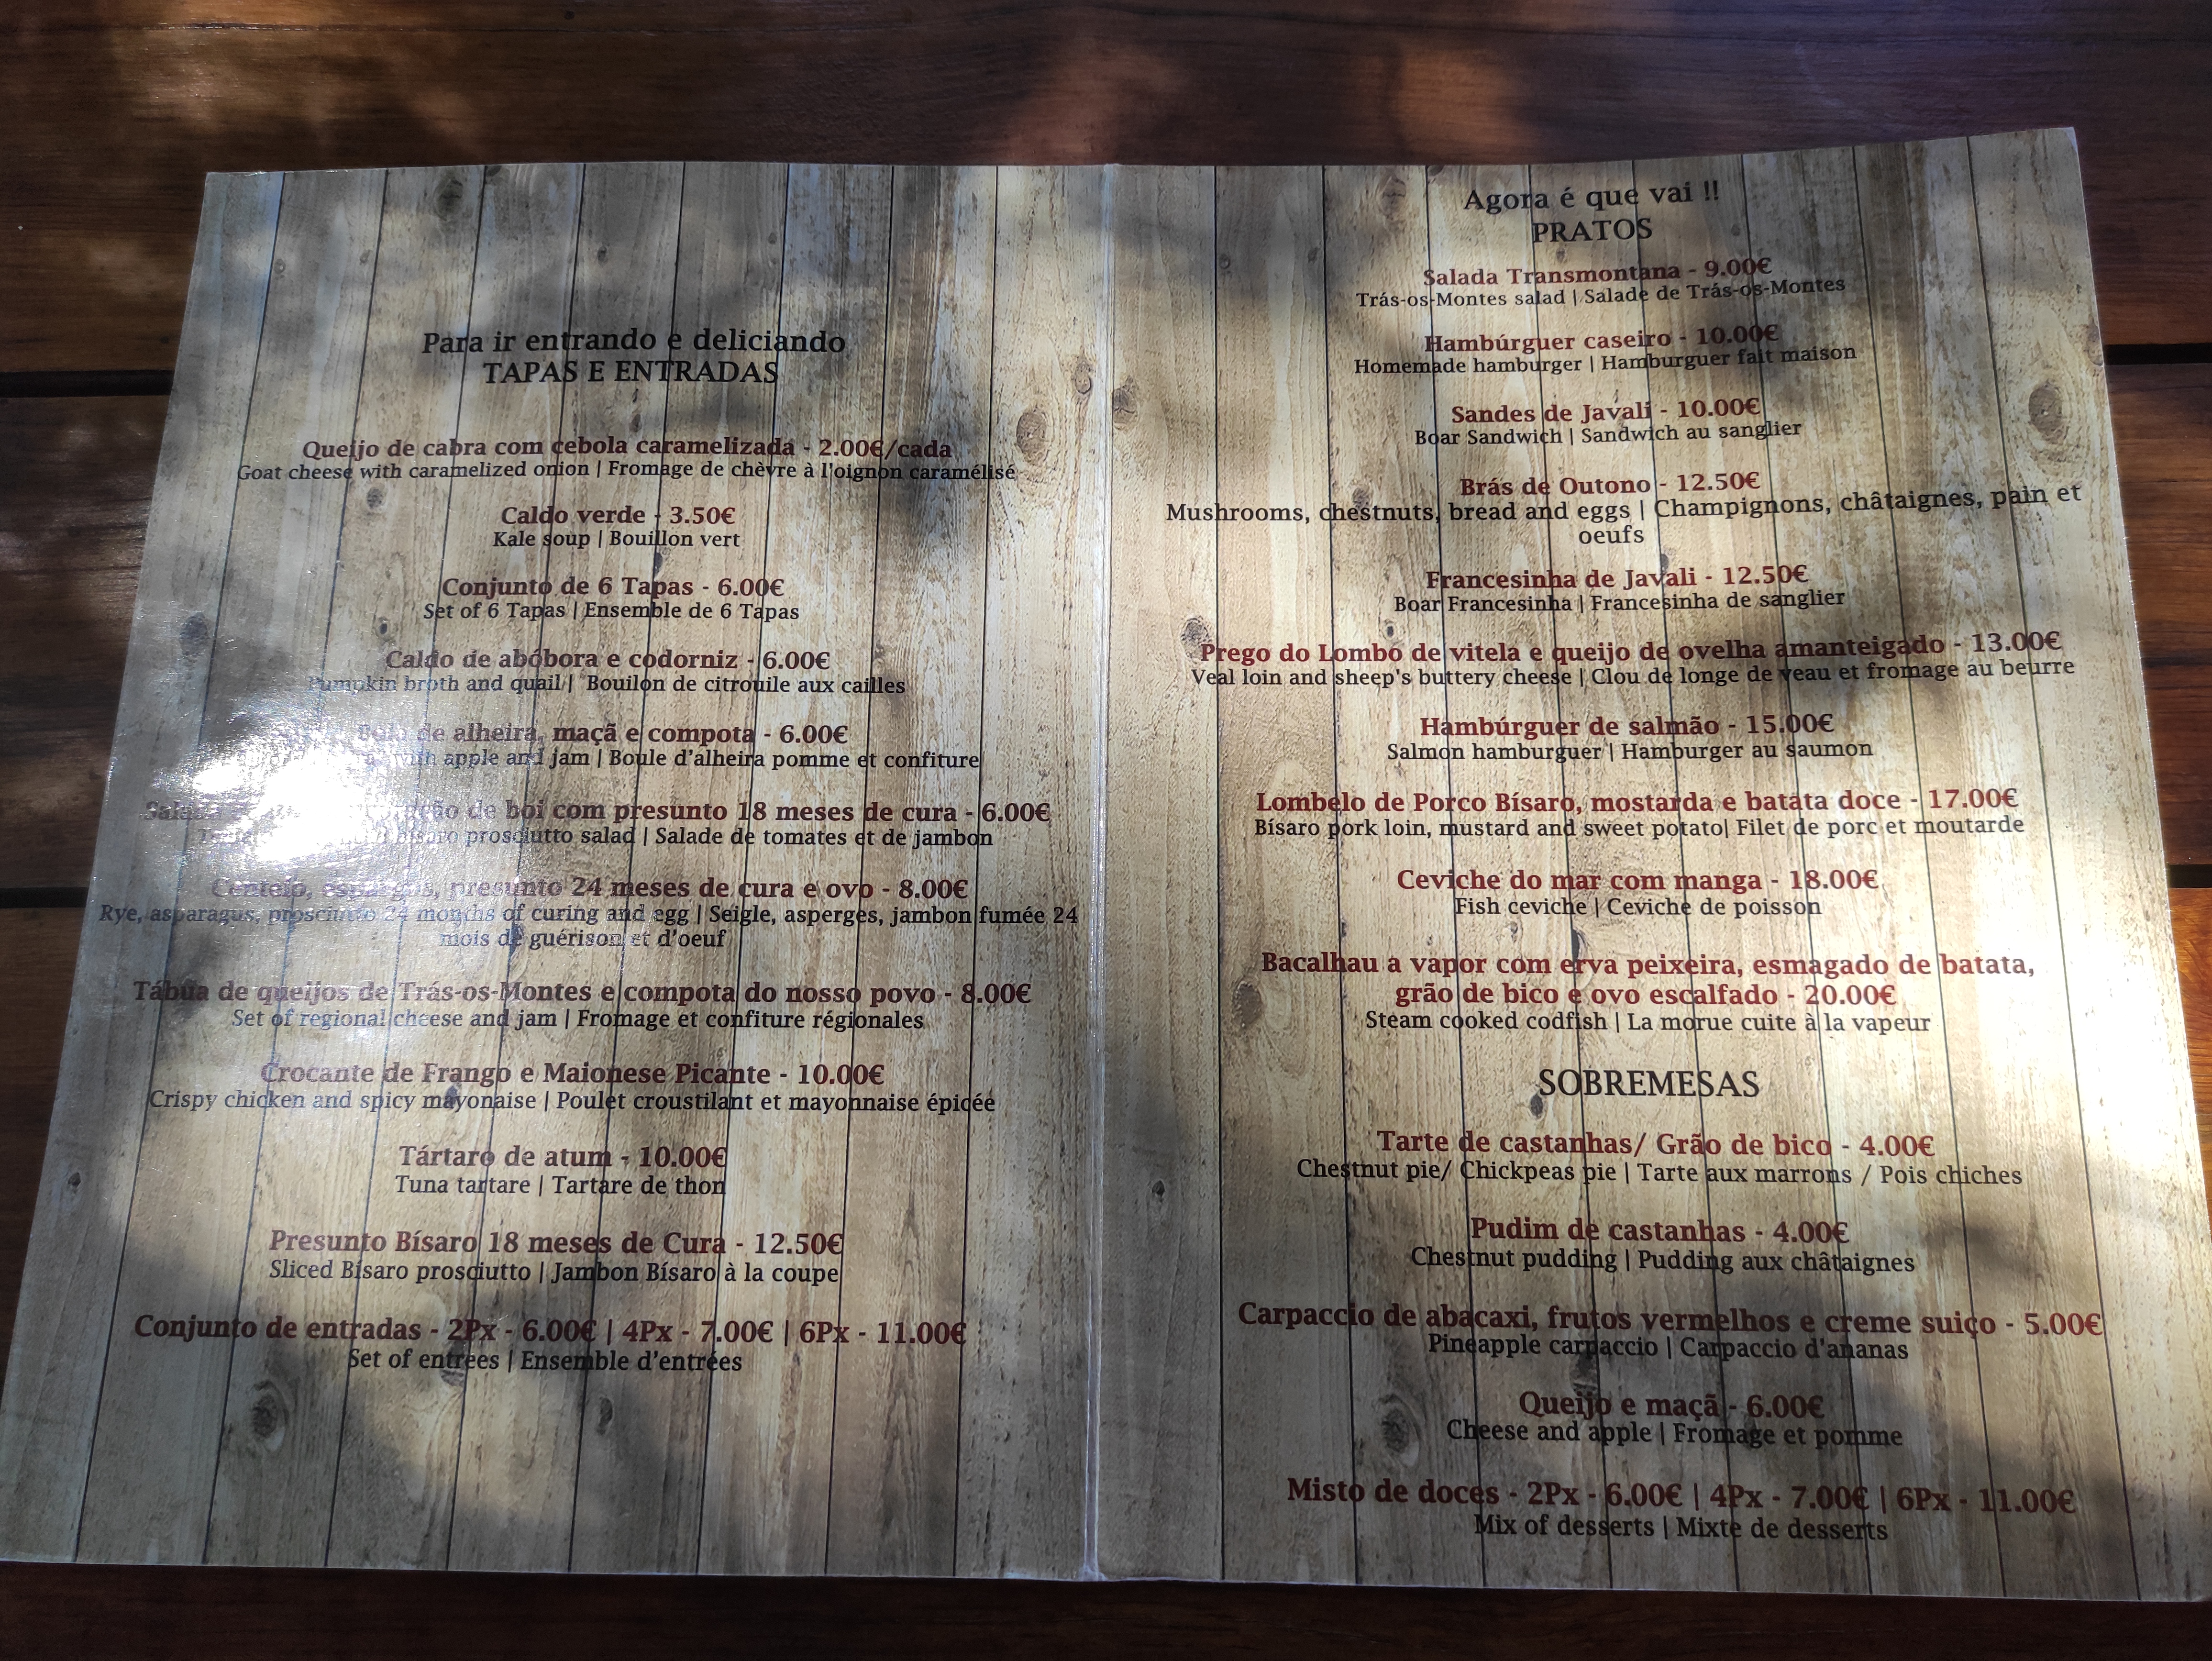 Para ir entrando e deliciando
TAPAS E ENTRADAS
Queijo de cabra com cebola caramelizada - 2.00€/cada
Goat cheese with caramelized onion | Fromage de chèvre à l'oignon caramélisé
Caldo verde - 3.50€
Kale soup | Bouillon vert
Conjunto de 6 Tapas - 6.00€
Set of 6 Tapas | Ensemble de 6 Tapas
Caldo de abóbora e codorniz - 6.00€
Pumpkin broth and quail | Bouilon de citrouile aux cailles
de alheira, maçã e compota - 6.00€
with apple and jam | Boule d'alheira pomme et confiture
Salada de boi com presunto 18 meses de cura - 6.00€
bísaro prosciutto salad | Salade de tomates et de jambon
Centeio, espargos, presunto 24 meses de cura e ovo - 8.00€
Rye, asparagus, prosciutto 24 months of curing and egg | Seigle, asperges, jambon fumée 24
mois de guérison et d'oeuf
Tábua de queijos de Trás-os-Montes e compota do nosso povo - 8.00€
Set of regional cheese and jam | Fromage et confiture régionales
Crocante de Frango e Maionese Picante - 10.00€
Crispy chicken and spicy mayonaise | Poulet croustilant et mayonnaise épicée
Tártaro de atum - 10.00€
Tuna tartare | Tartare de thon
Presunto Bísaro 18 meses de Cura - 12.50€
Sliced Bísaro prosciutto | Jambon Bísaro à la coupe
Conjunto de entradas - 2Px - 6.00€ | 4Px - 7.00€ | 6Px - 11.00€
Set of entrees | Ensemble d'entrées
Agora é que vai !!
PRATOS
Salada Transmontana - 9.00€
Trás-os-Montes salad | Salade de Trás-os-Montes
Hambúrguer caseiro - 10.00€
Homemade hamburger | Hamburguer fait maison
Sandes de Javali - 10.00€
Boar Sandwich | Sandwich au sanglier
Brás de Outono - 12.50€
Mushrooms, chestnuts, bread and eggs | Champignons, châtaignes, pain et
oeufs
Francesinha de Javali - 12.50€
Boar Francesinha | Francesinha de sanglier
Prego do Lombo de vitela e queijo de ovelha amanteigado - 13.00€
Veal loin and sheep's buttery cheese | Clou de longe de veau et fromage au beurre
Hambúrguer de salmão - 15.00€
Salmon hamburguer | Hamburger au saumon
Lombelo de Porco Bísaro, mostarda e batata doce - 17.00€
Bísaro pork loin, mustard and sweet potato| Filet de porc et moutarde
Ceviche do mar com manga - 18.00€
Fish ceviche | Ceviche de poisson
Bacalhau a vapor com erva peixeira, esmagado de batata,
grão de bico e ovo escalfado - 20.00€
Steam cooked codfish | La morue cuite à la vapeur
SOBREMESAS
Tarte de castanhas/ Grão de bico - 4.00€
Chestnut pie/ Chickpeas pie | Tarte aux marrons / Pois chiches
Pudim de castanhas - 4.00€
Chestnut pudding | Pudding aux châtaignes
Carpaccio de abacaxi, frutos vermelhos e creme suiço - 5.00€
Pineapple carpaccio | Carpaccio d'ananas
Queijo e maçã - 6.00€
Cheese and apple | Fromage et pomme
Misto de doces - 2Px - 6.00€ | 4Px - 7.00€ | 6Px - 11.00€
Mix of desserts | Mixte de desserts